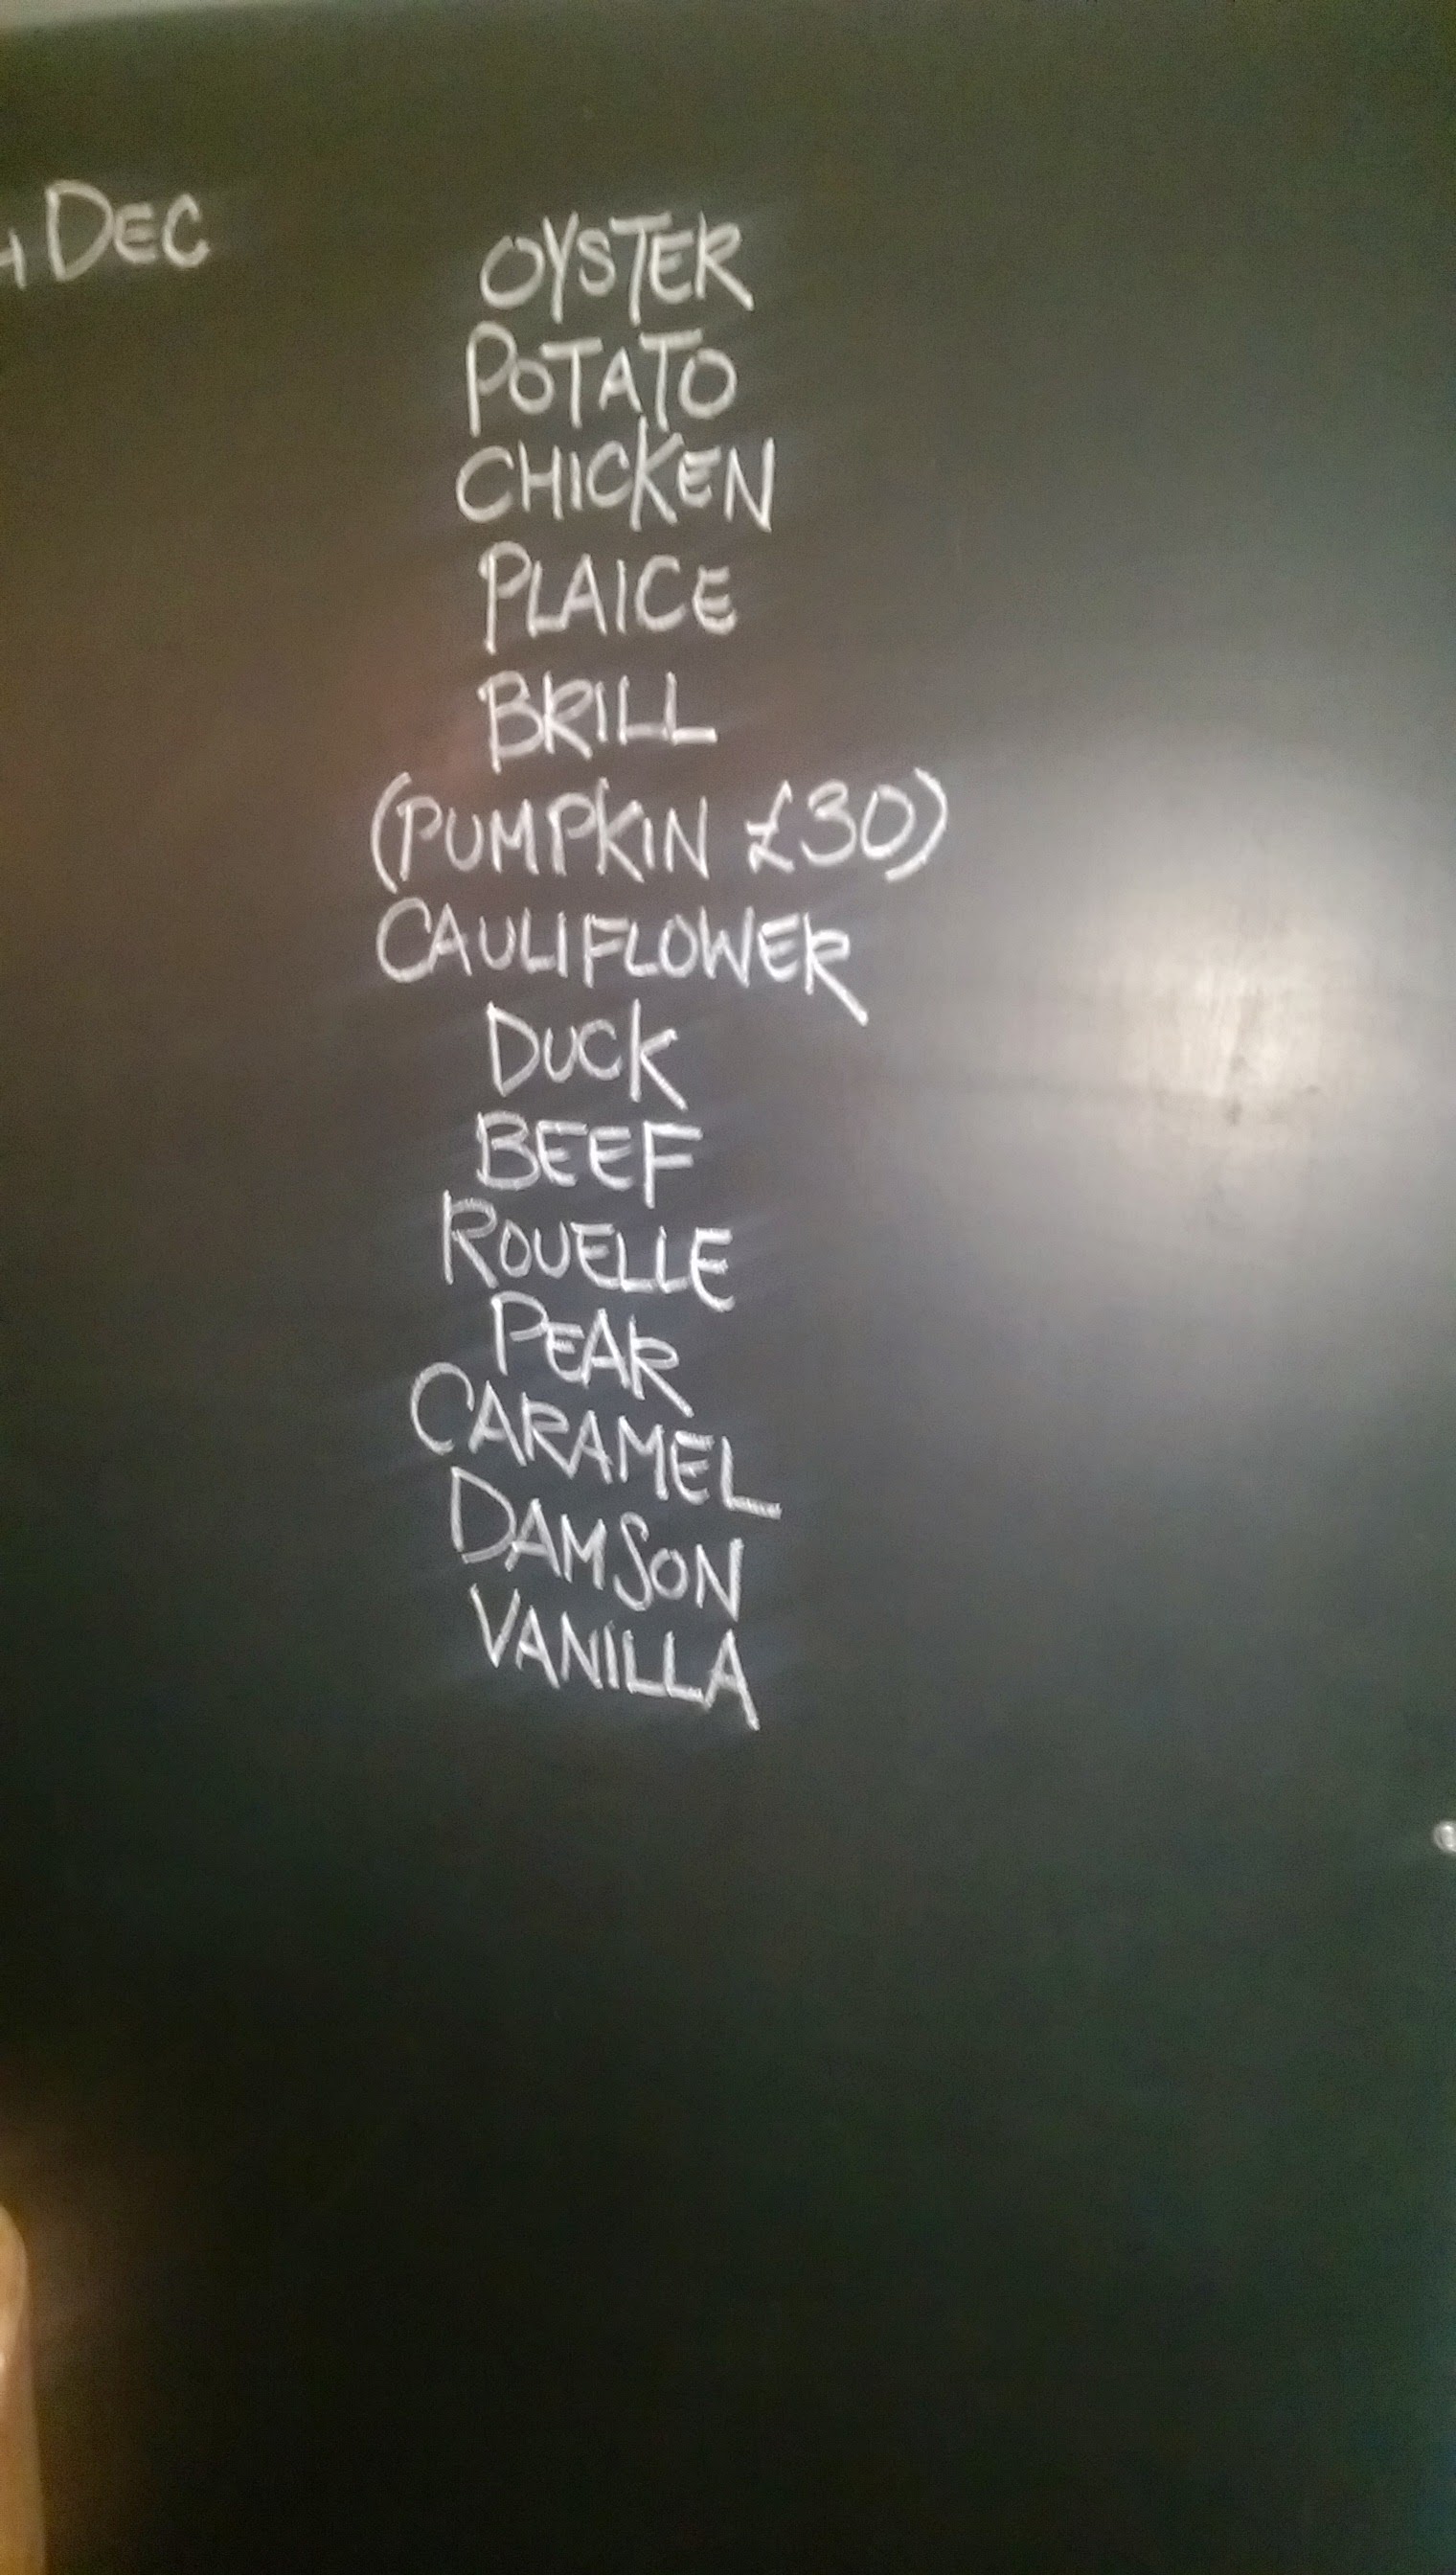 DEC
OYSTER
POTATO
CHICKEN
PLAICE
BRILL
(PUMPKIN £30)
CAULIFLOWER
DUCK
BEEF
ROUELLE
PEAR
CARAMEL
DAMSON
VANILLA